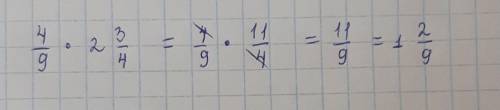 4/9 · 2 3/4 = 4/9 · 11/4 = 11/9 = 1 2/9